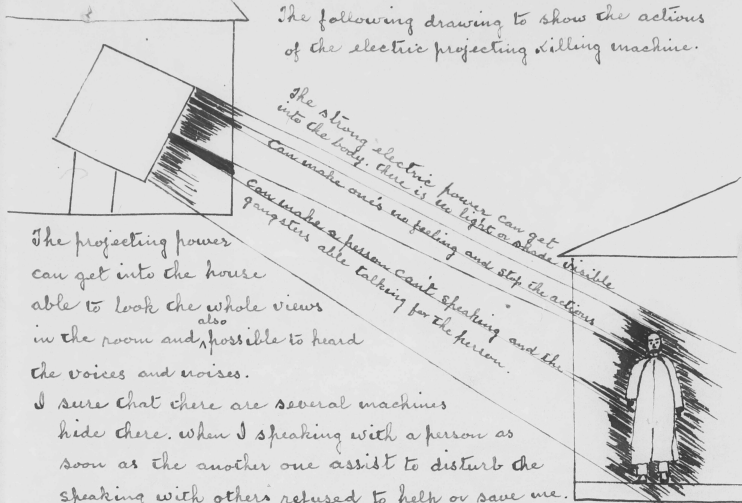 The following drawing to show the actions
of the electric projecting killing machine.
The strong electric power can get
into the body. there is no light or shade visible
can make one's no feeling and stop the actions
can make a person can't speaking and the
gangsters able talking for the person.
The projecting power
can get into the house
able to look the whole views
in the room and also possible to heard
the voices and noises.
I sure that there are several machines
hide there. when I speaking with a person as
soon as the another one assist to disturb the
speaking with others refused to help or save me.